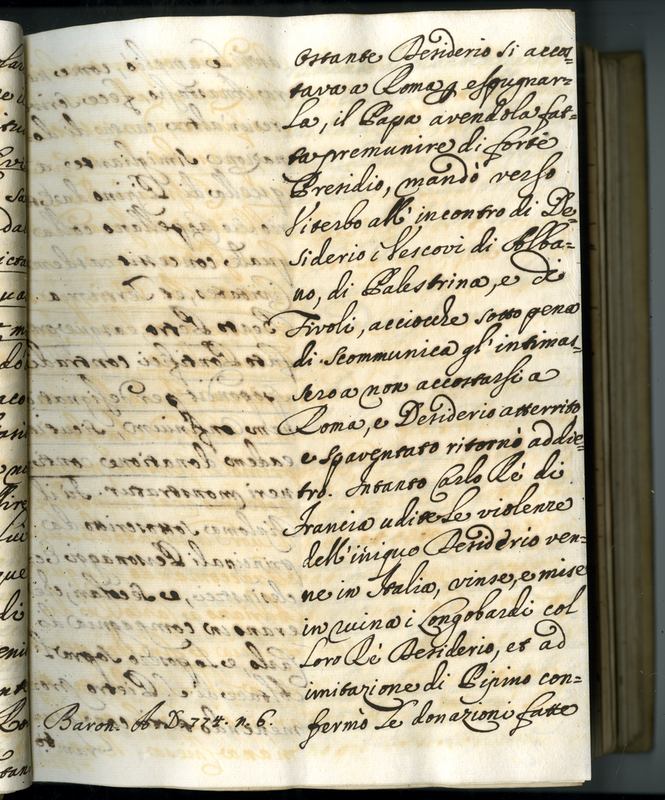 ostante Desiderio si accos=
tava a Roma p espugnar=
la, il Papa avendola fat=
ta premunire di forte
Presidio, mandò verso
Viterbo all'incontro di De=
siderio i Vescovi di Alba=
no, di Palestrina, e di
Tivoli, acciocche sotto pena
di scommunica gl'intimas=
sero a non accostarsi a
Roma, e Desiderio atterrito
e spaventato ritornò addie=
tro. Intanto Carlo Rè di
Francia udite le violenze
dell'iniquo Desiderio ven=
ne in Italia, vinse, e mise
in ruina i Longobardi col
loro Rè Desiderio, et ad
imitazione di Pipino con=
fermò le donazioni fatte
Baron. A D. 774. n. 6.